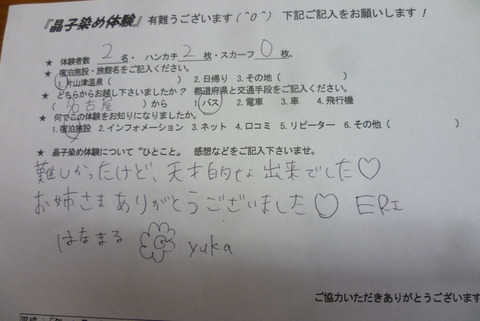 『晶子染め体験』 有難うございます(^o^) 下記ご記入をお願いします!
★ 体験者数 2名・ ハンカチ 2枚・スカーフ 0枚、
★ 宿泊施設・旅館名をご記入ください。
1.片山津温泉( ) 2.日帰り 3.その他( )
★ どちらからお越し下さいましたか? 都道府県と交通手段をご記入ください。
(名古屋 )から 1.バス 2.電車 3.車 4.飛行機
★ 何でこの体験をお知りになりましたか。
1.宿泊施設 2.インフォメーション 3.ネット 4.口コミ 5.リピーター 6.その他( )
★ 晶子染め体験について“ひとこと。 感想などをご記入下さいませ。
難しかったけど、天才的な出来でした♡
お姉さまありがとうございました♡ ERI
はなまる yuka
ご協力いただきありがとうございます